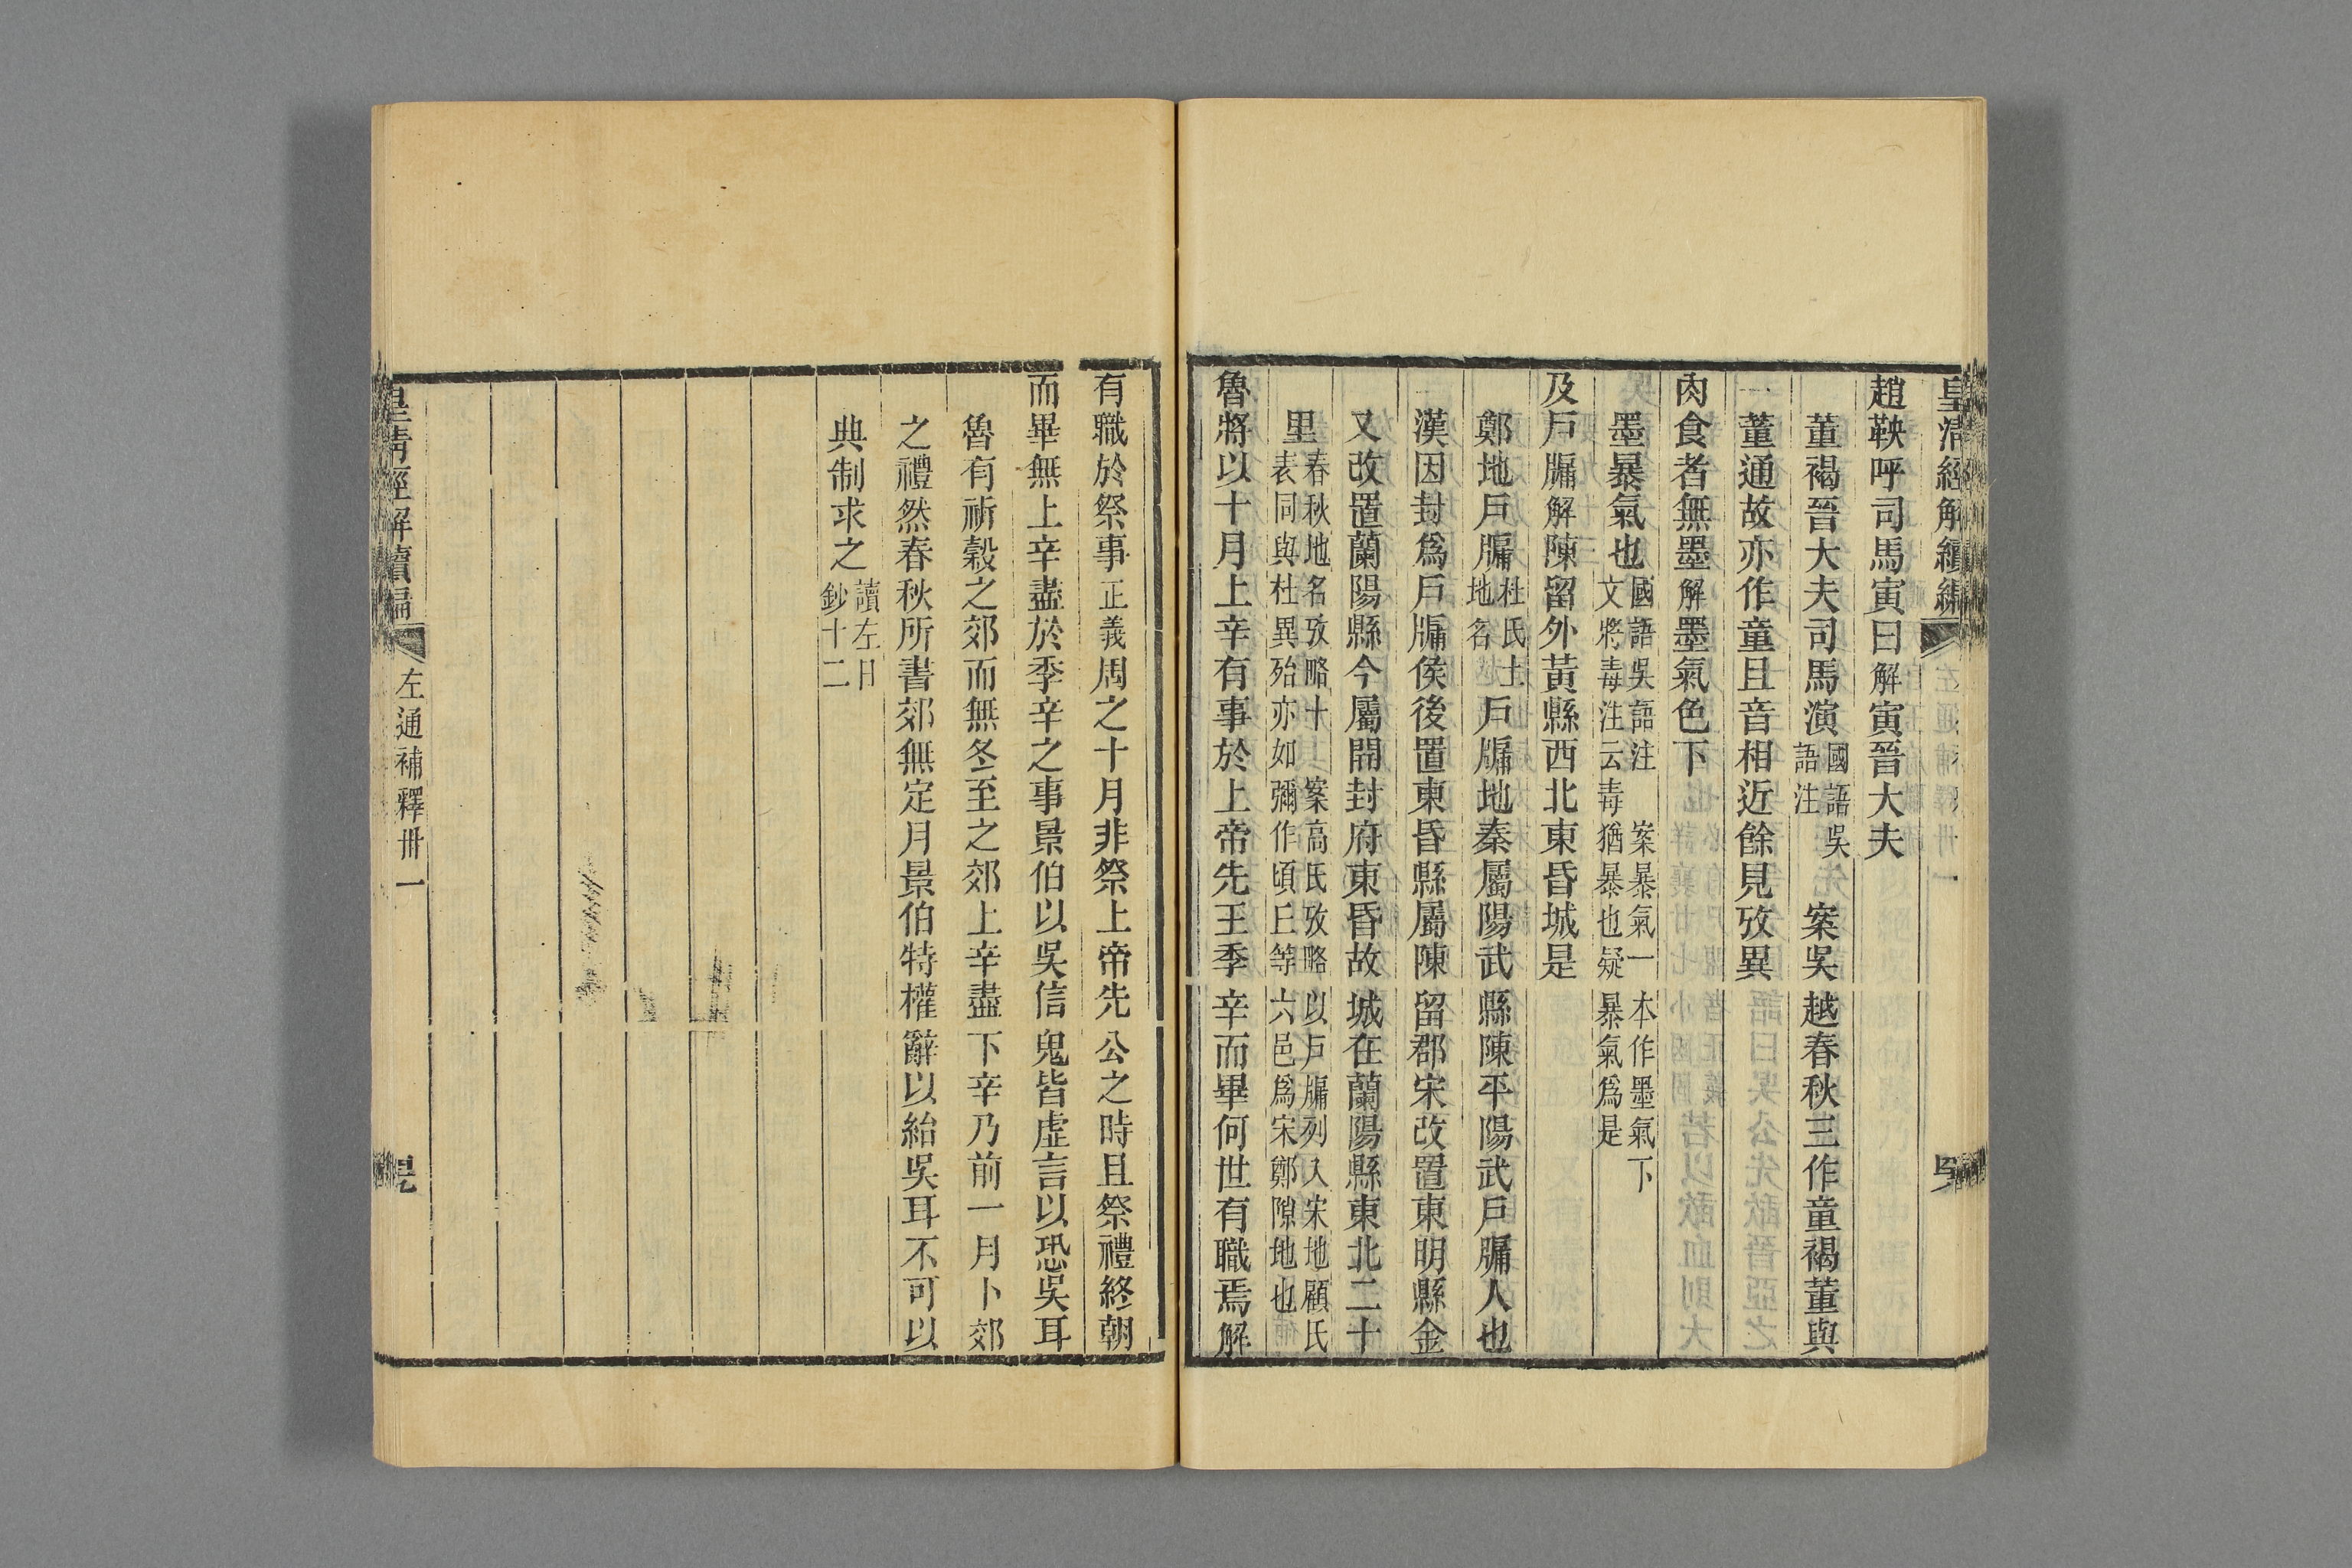 皇清經解續編
趙鞅呼司馬寅曰解寅晉大夫
董褐晉大夫司馬演國語吳語注案吳越春秋三作童褐董與
董通故亦作童且音相近餘見攷異
肉食者無墨解墨氣色下
墨暴氣也國語吳語注文將毒注云毒猶暴也疑案暴氣一本作墨氣下暴氣爲是
及戶牖解陳留外黃縣西北東昏城是
鄭地戶牖杜氏土地名戶牖地秦屬陽武縣陳平陽武戶牖人也
漢因封爲戶牖侯後置東昏縣屬陳留郡宋改置東明縣金
又改置蘭陽縣今屬開封府東昏故城在蘭陽縣東北二十
里春秋地名攷略十案高氏攷略以戶牖列入宋地顧氏表同與杜異殆亦如彌作頃丘等六邑爲宋鄭隙地也
魯將以十月上辛有事於上帝先王季辛而畢何世有職焉解
有職於祭事正義周之十月非祭上帝先公之時且祭禮終朝
而畢無上辛盡於季辛之事景伯以吳信鬼皆虛言以恐吳耳
魯有祈穀之郊而無冬至之郊上辛盡下辛乃前一月卜郊
之禮然春秋所書郊無定月景伯特權辭以紿吳耳不可以
典制求之讀左日鈔十二
皇清經解續編
左通補釋卅一